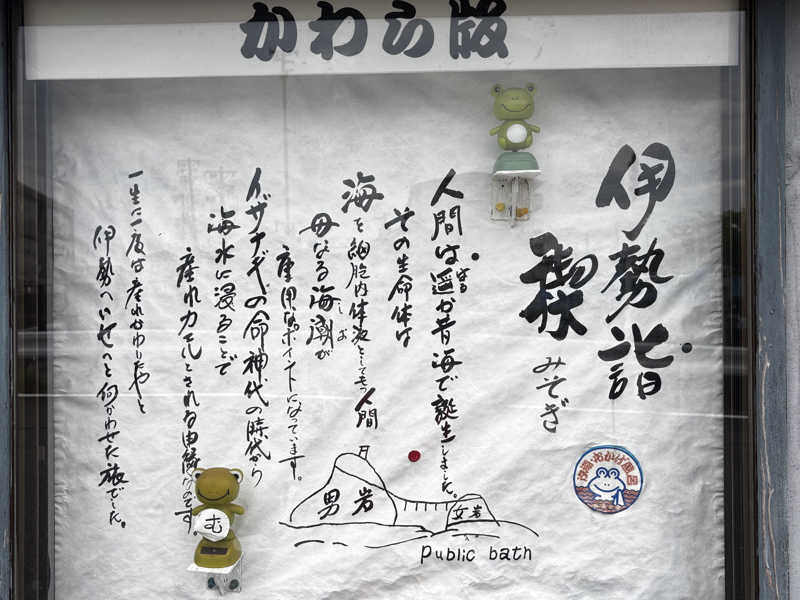 かわら版
伊勢詣
禊 みそぎ
人間は遥か昔海で誕生しました。
はる
その生命体は
海を細胞内体液としてもつ人間
母なる海潮が
しお
重要なポイントになっています。
イザナギの命神代の時代から
海水に浸ることで
産れカエルとされる由縁なのです。
一生に一度は産れかわりたやと
伊勢へいせへと向かわせた旅でした。
男岩
女岩
public bath
む